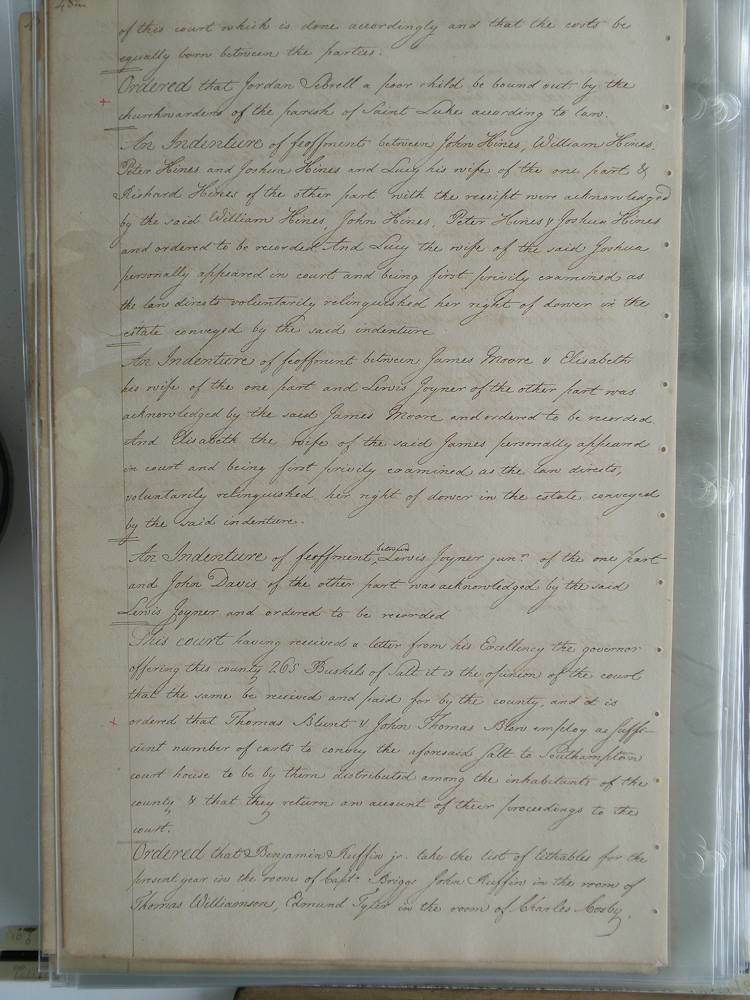 of this court which is done accordingly and that the costs be
equally born between the parties.
Ordered that Jordan Sebrell a poor child be bound out by the
churchwardens of the parish of Saint Luke acording to law.
An Indenture of feoffment between John Hines, William Hines.
Peter Hines and Joshua Hines and Lucy his wife of the one part &
Richard Hines of the other part with the receipt were acknowledged
by the said William Hines, John Hines, Peter Hines & Joshua Hines
and ordered to be recorded And Lucy the wife of the said Joshua
personally appeared in court and being first privily examined as
the law directs voluntarily relinquished her right of dower in the
estate conveyed by the said indenture
An Indenture of feoffment between James Moore & Elisabeth
his wife of the one part and Lewis Joyner of the other part was
acknowledged by the said James Moore and ordered to be recorded.
And Elisabeth the wife of the said James personally appeared
in court and being first privily examined as the law directs,
voluntarily relinquished her right of dower in the estate conveyed
by the said indenture.
An Indenture of feoffment between Lewis Joyner junr of the one part
and John Davis of the other part was acknowledged by the said
Lewis Joyner and ordered to be recorded
This court having received a letter from his Excellency the governor
offering this county 265 Bushels of Salt it is the opinion of the court
that the same be recieved and paid for by the county, and it is
ordered that Thomas Blunt & John Thomas Blow employ a suffi-
cient number of carts to convey the aforesaid salt to Southampton
court house to be by them distributed among the inhabitants of the
county & that they return an account of their proceedings to the
court.
Ordered that Benjamin Ruffin jr. take the list of tithables for the
present year in the room of Capt. Briggs John Ruffin in the room of
Thomas Williamson, Edmund Tyler in the room of Charles Cosby,